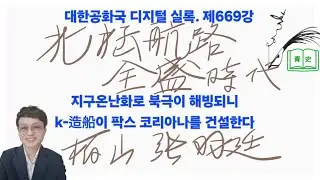 대한공화국 디지털 실록. 제669강
北極航路
全盛時代
靑史
지구온난화로 북극이 해빙되니
k-造船이 팍스 코리아나를 건설한다